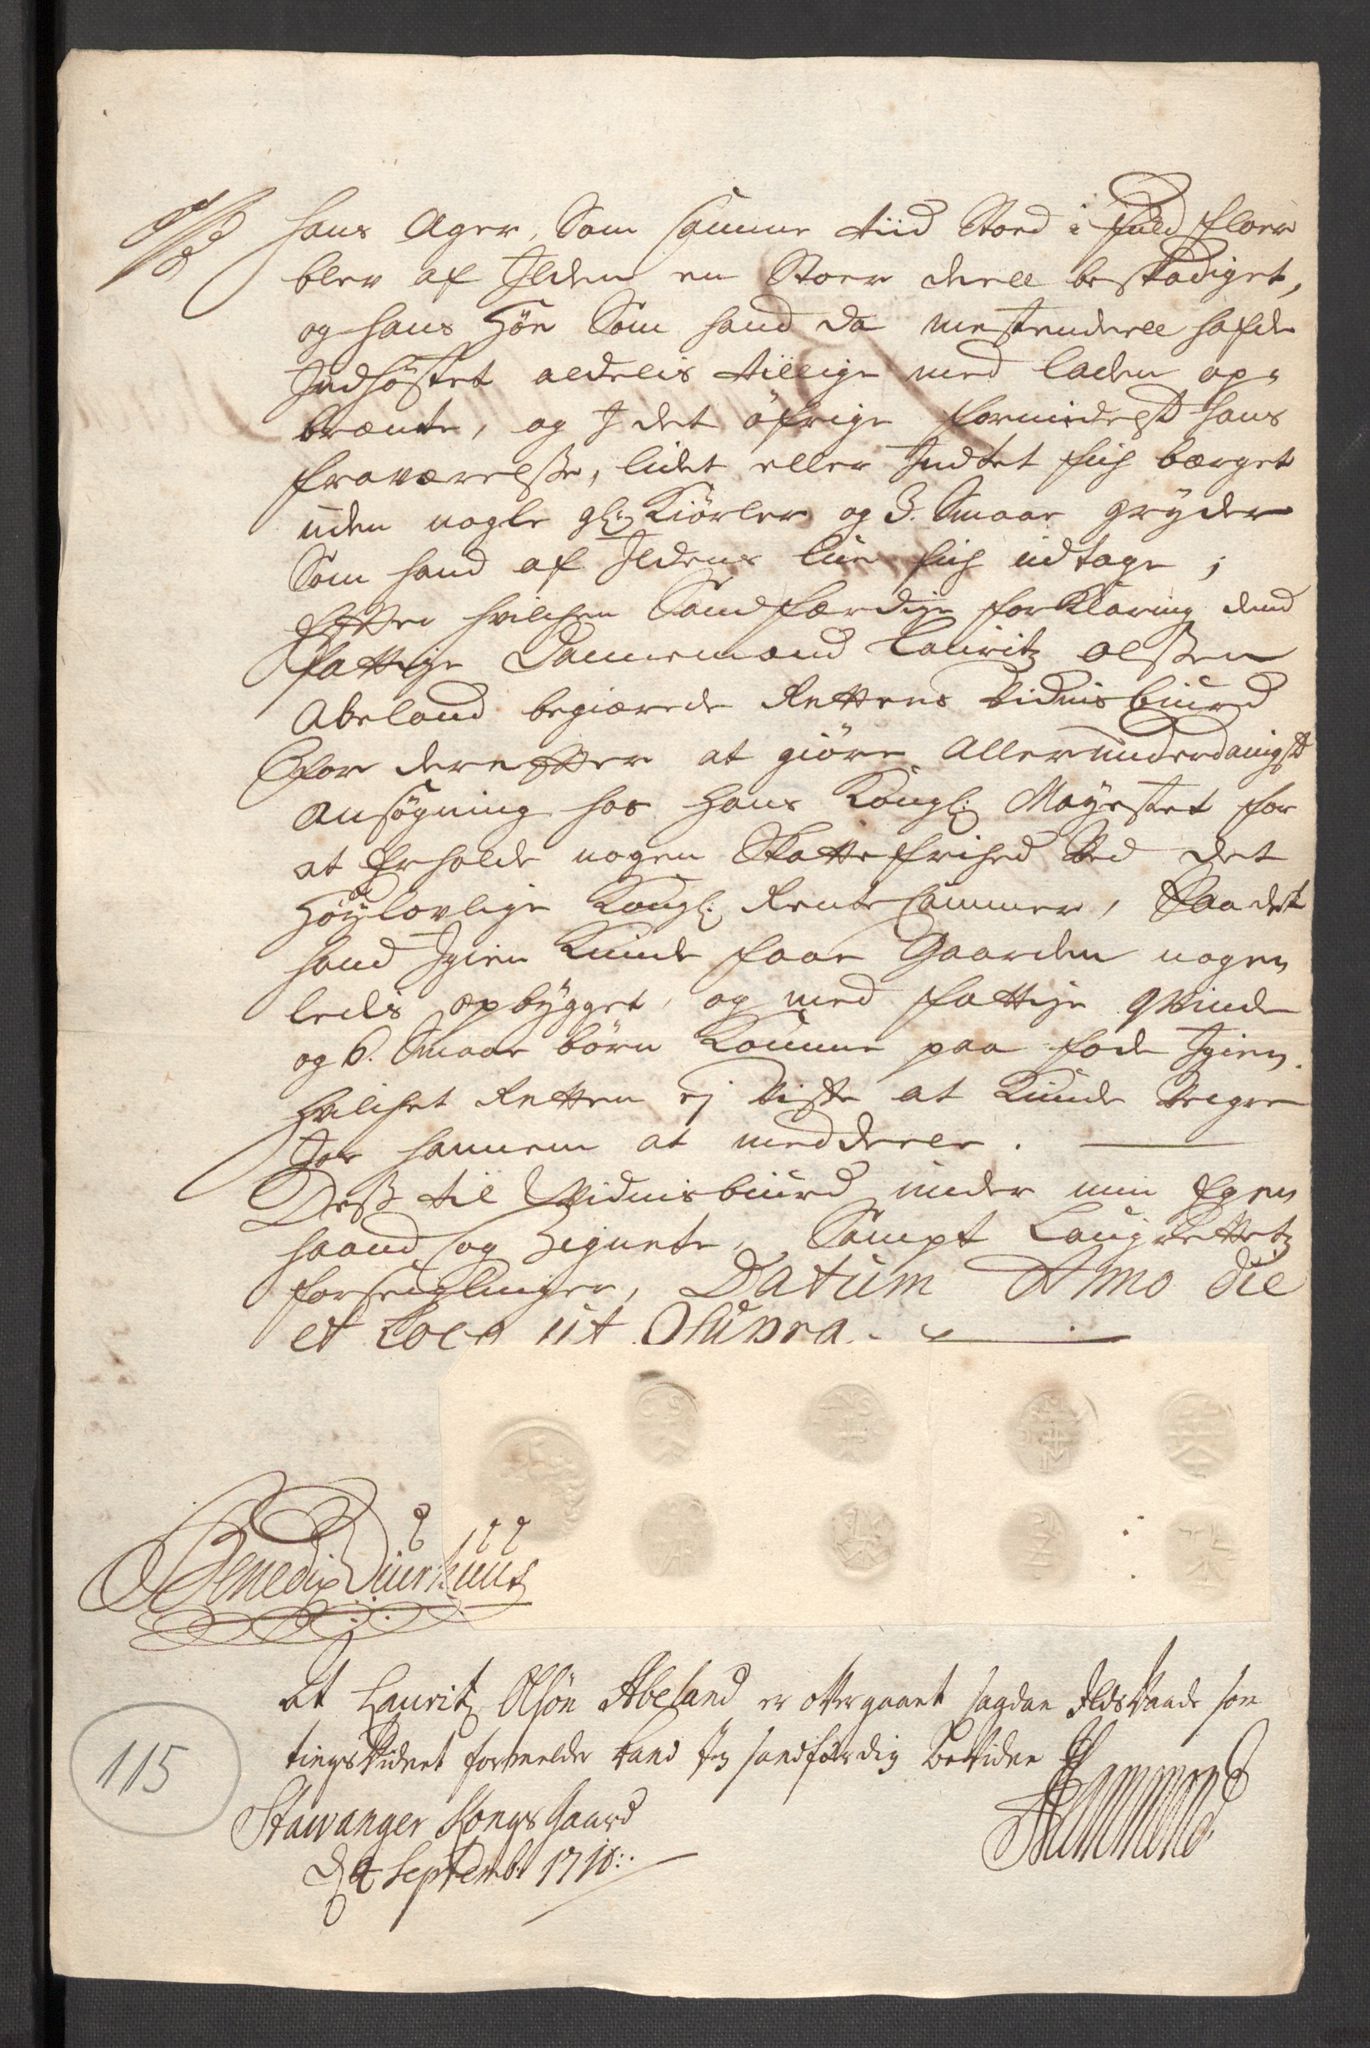 hans Ager, Som samme tiid Stoed i fuld floer
blev af Ilden en Stoer deell beskadiget,
og hans Höe Som hand da mestendeell hafde
Indhöstet aldelis tillige med laden op-
brænte, og I det öfrige formedelst hans
fraværelsse, lidet eller Indtet fich bærget
uden nogle gl: Kiörler og 3. Smaae gryder
Som hand af Ildens lue fich udtage ;
Efter hvilchen Sandfærdige forKlaring dend
fattige Dannemand Lauritz olssen
Abeland begiærede Rettens Vidnisbiurd
for derefter at giöre Allerunderdanigst
Ansögning hos Hans Kongl: Mayestet for
at Erholde nogen Skatte frihed Ved det
Höylovlige Kongl: Rente Cammer, Saa det
hand Igien Kunde faae Gaarden nogen
ledis opbygget, og med fattige Qvinde
og 6. Smaae börn Komme paa fode Igien.
Hvilchet Retten ej Viste at Kunde Veigre
for hannem at meddeele.
Dess til Vidnisbiurd under min Egen
haand og Zignete, Sampt Laugrettetz
forseiglinger, Datum Anno die
et Loco ut Supra.
Benedix Diurhuus
At Lauritz Olsön Abeland er overgaaet sagdan Ildsvaade som
tingsvidnet formelder kand Jeg sandfærdig bevidne
Stawanger Kongsgaard
d 2 Septemb: 1718:
Hammond
115